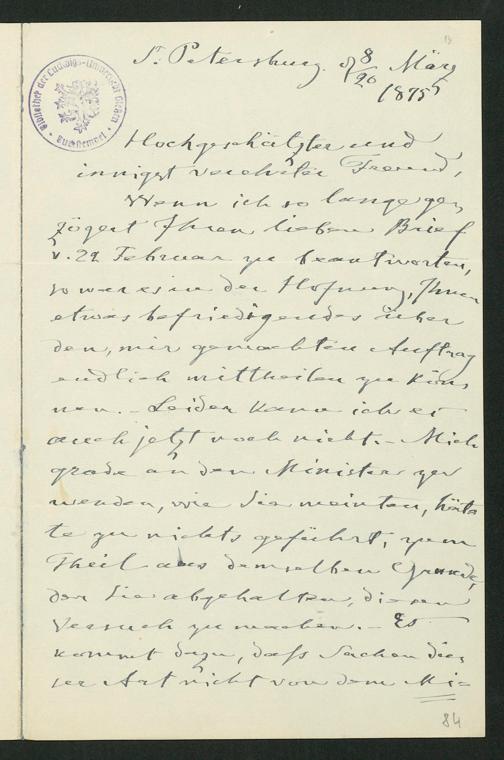 St. Petersburg. d 8/20 März
1875
Bibliothek der Ludwigs-Universität Giessen
Hochgeschätzter und
innigst verehrter Freund,
Wenn ich so lange ge,
zögert Ihren lieben Brief
v. 22 Februar zu beantworten,
so war es in der Hofnung, Ihnen
etwas befriedigendes über
den, mir gemachten Auftrag
endlich mittheilen zu kön,
nen. – Leider kann ich es
auch jetzt noch nicht. – Mich
grade an den Minister zu
wenden, wie Sie meinten, hät
te zu nichts geführt, zum
Theil aus demselben Grunde,
der Sie abgehalten, diesen
Versuch zu machen. – Es
kommt dazu, dass Sachen die,
ser Art nicht von dem Mi=
84